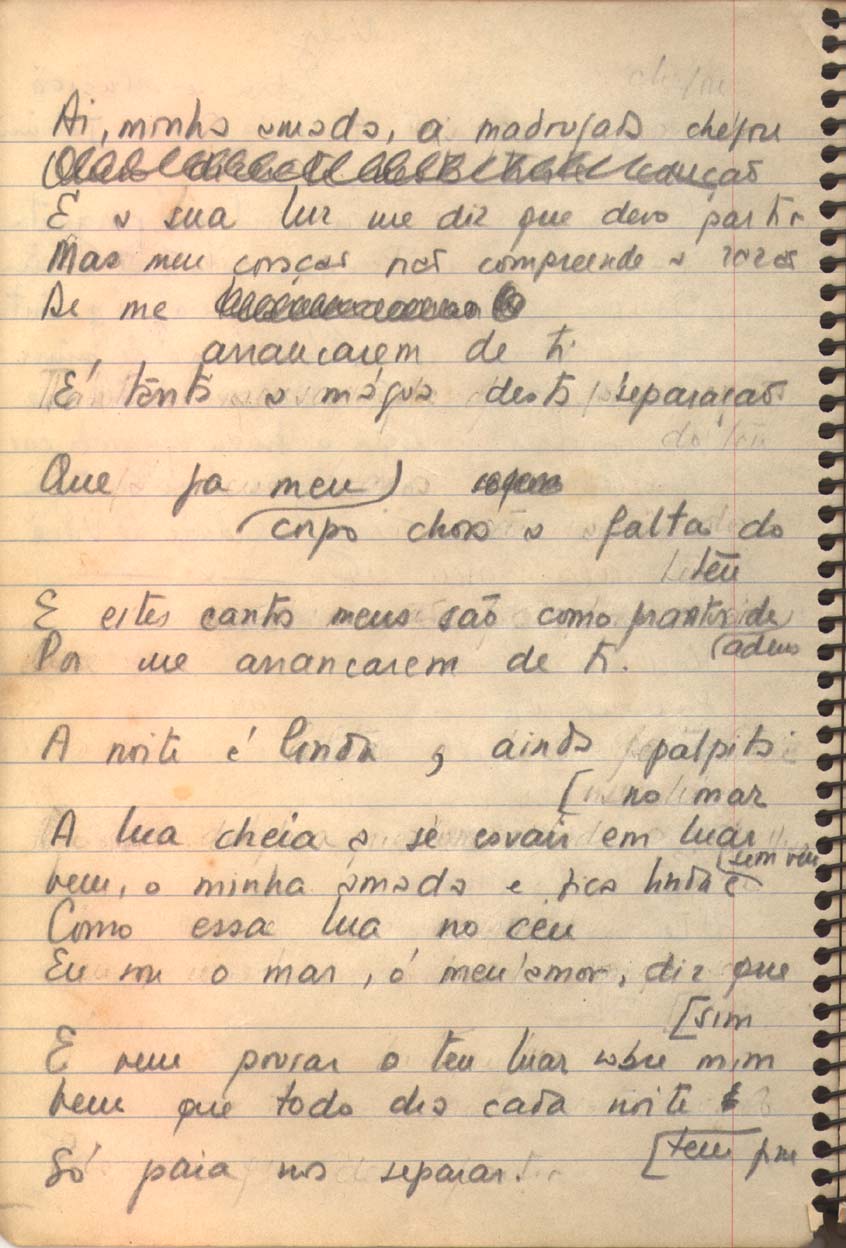 Ai, minha amada, a madrugada chegou
E a sua luz me diz que devo partir
Mas meu coração não compreende a razão
De me
arrancarem de ti
É tanta a mágua desta separação
Que já meu
corpo chora a falta do
teu
E estes cantos meus são como prantos de
(adeus
Por me arrancarem de ti.
A noite é linda, ainda palpita
[no mar
A lua cheia a se esvair em luar
(sem véu
Vem, o minha amada e fica linda
Como essa lua no céu
Eu sou o mar, ó meu amor, diz que
[sim
E vem pousar o teu luar sobre mim
Vem que todo dia cada noite
[tem fim
Só para nos separar.